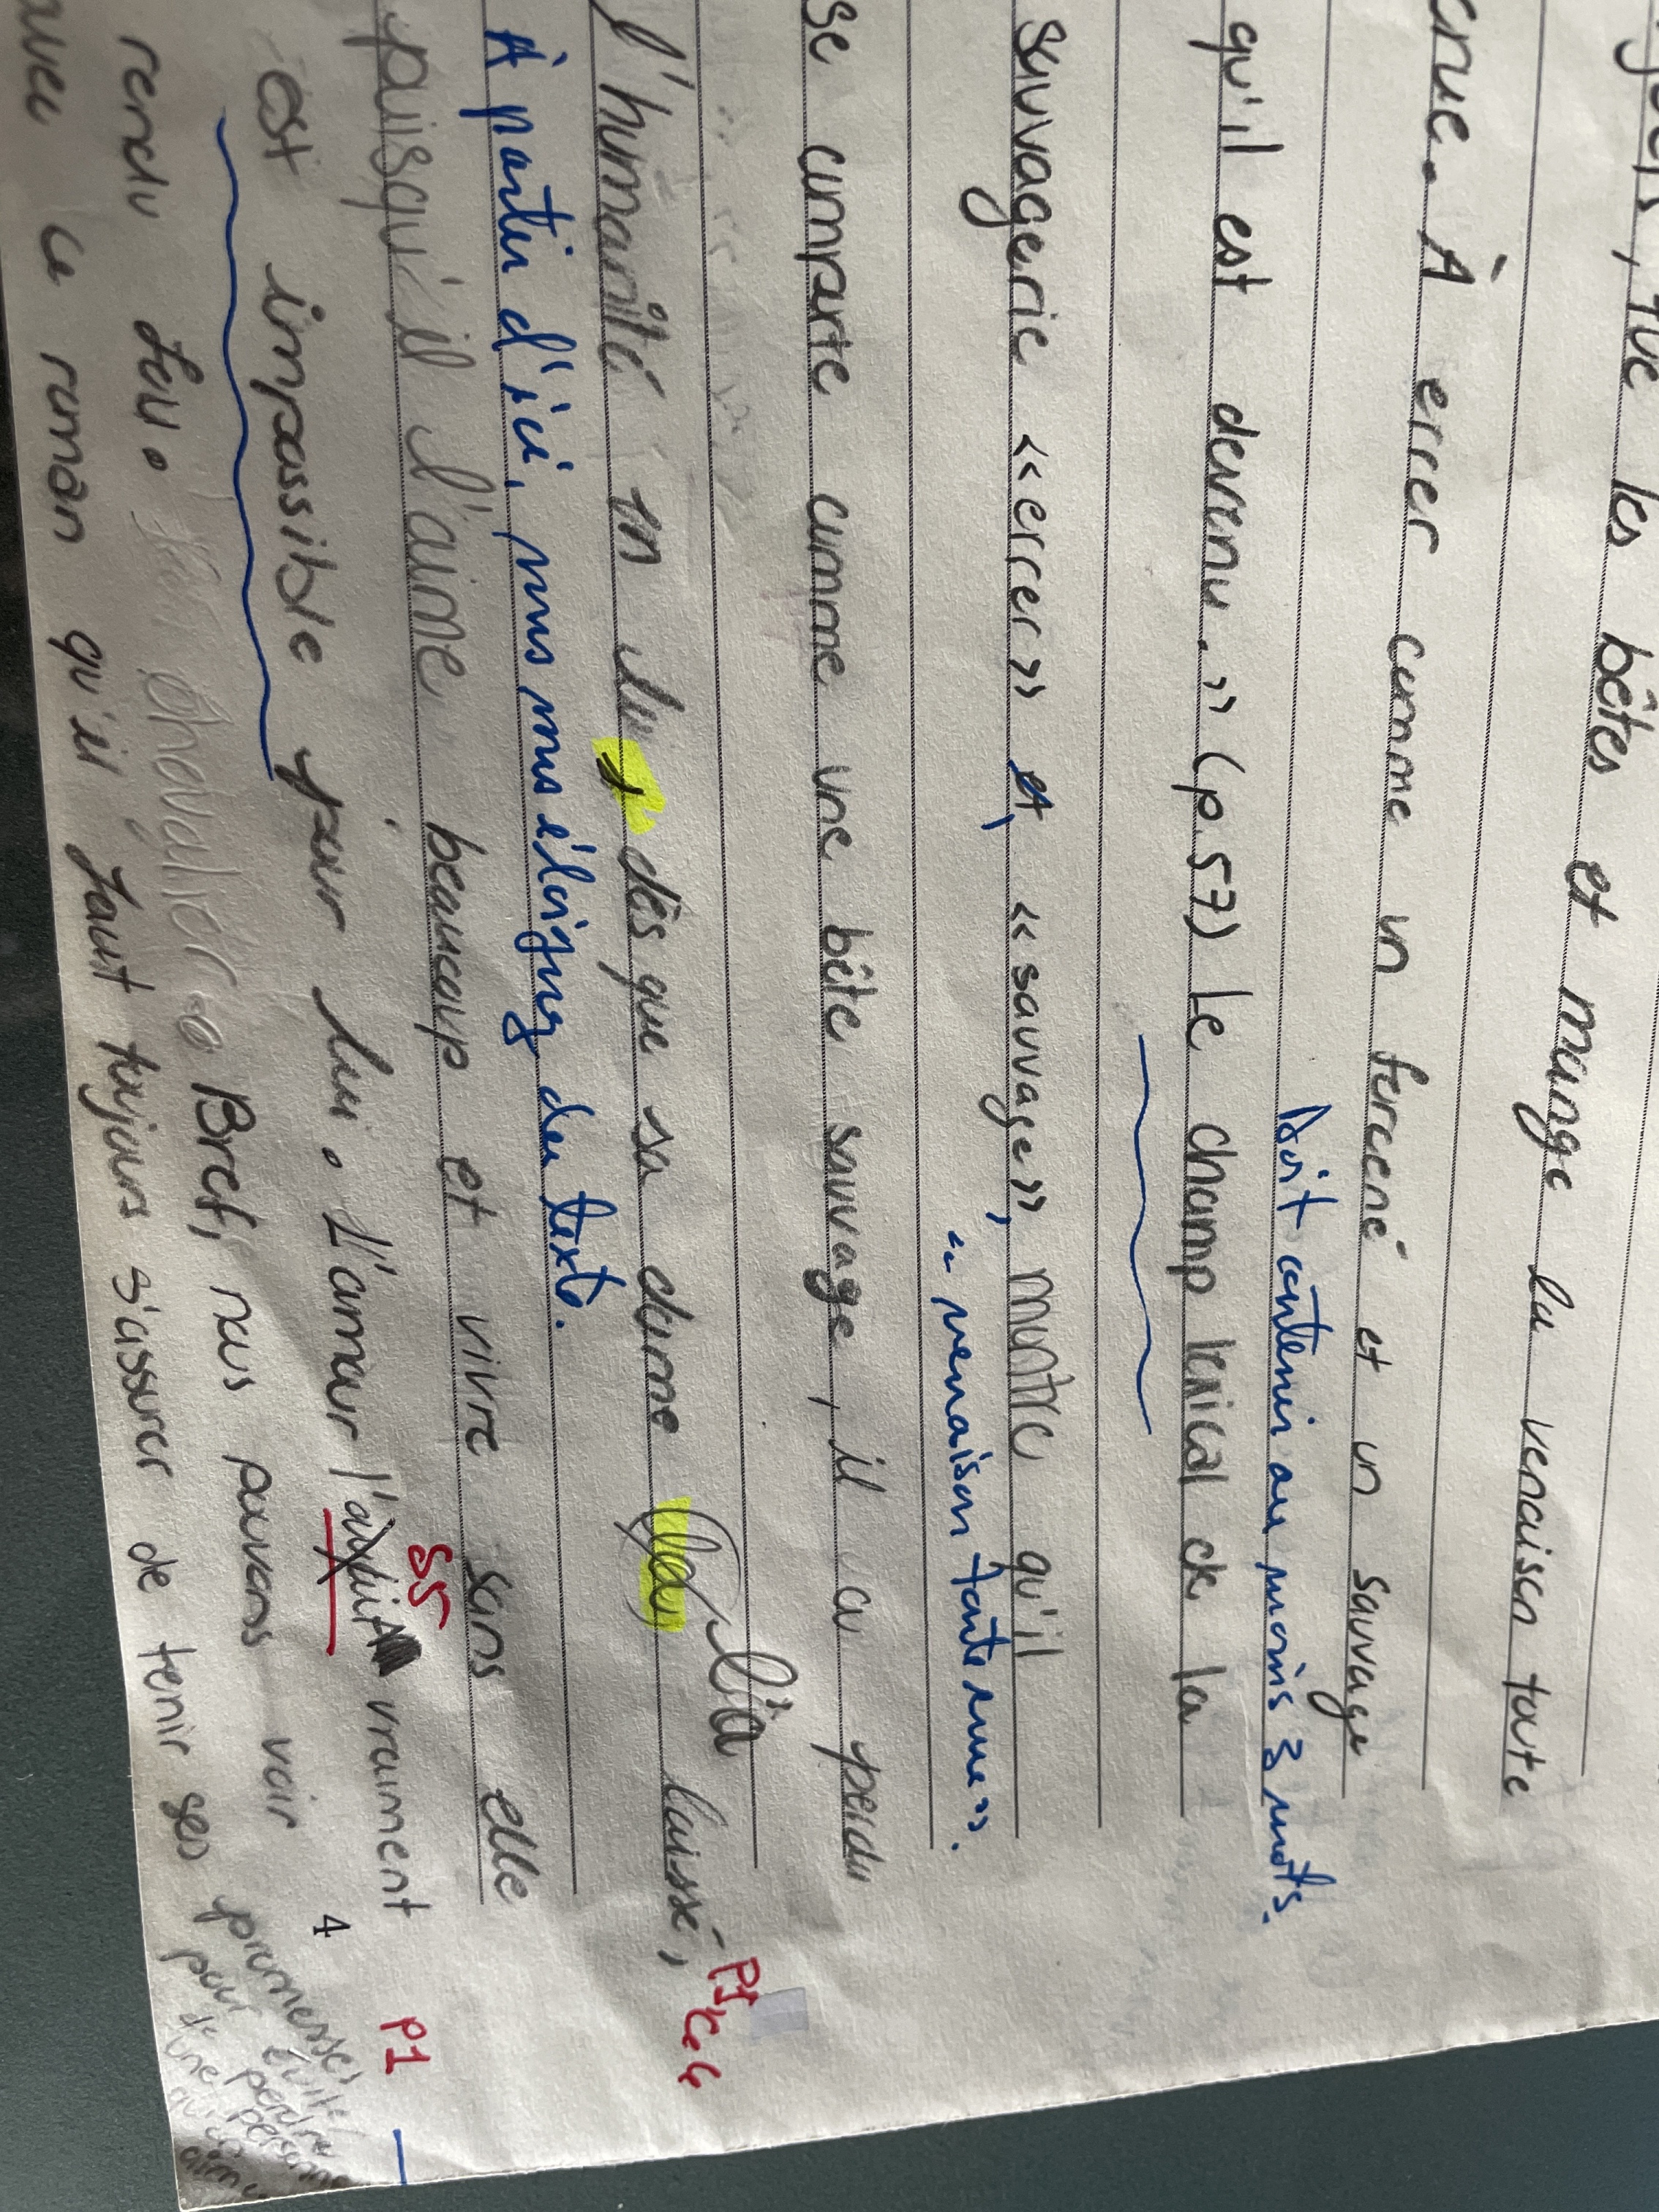 , que les bêtes et mange la venaison toute
crue. À errer comme un forcené et un sauvage
Doit contenir au moins 3 mots.
qu'il est devenu. » (p.57) Le champ lexical de la
sauvagerie « errer » et, « sauvage », montre qu'il
« venaison toute crue ».
se comporte comme une bête sauvage, il a perdu
l'humanité en lui, dès que sa dame l'a laissé,
PI
À partir d'ici, vous vous éloignez du texte.
puisqu'il l'aime beaucoup et vivre sans elle
SS
est impossible pour lui. L'amour l' vraiment
P1
4
rendu fou. chevalier Bref, nous pouvons voir
avec ce roman qu'il faut toujours s'assurer de tenir ses promesses
pour perdre
d'une personne